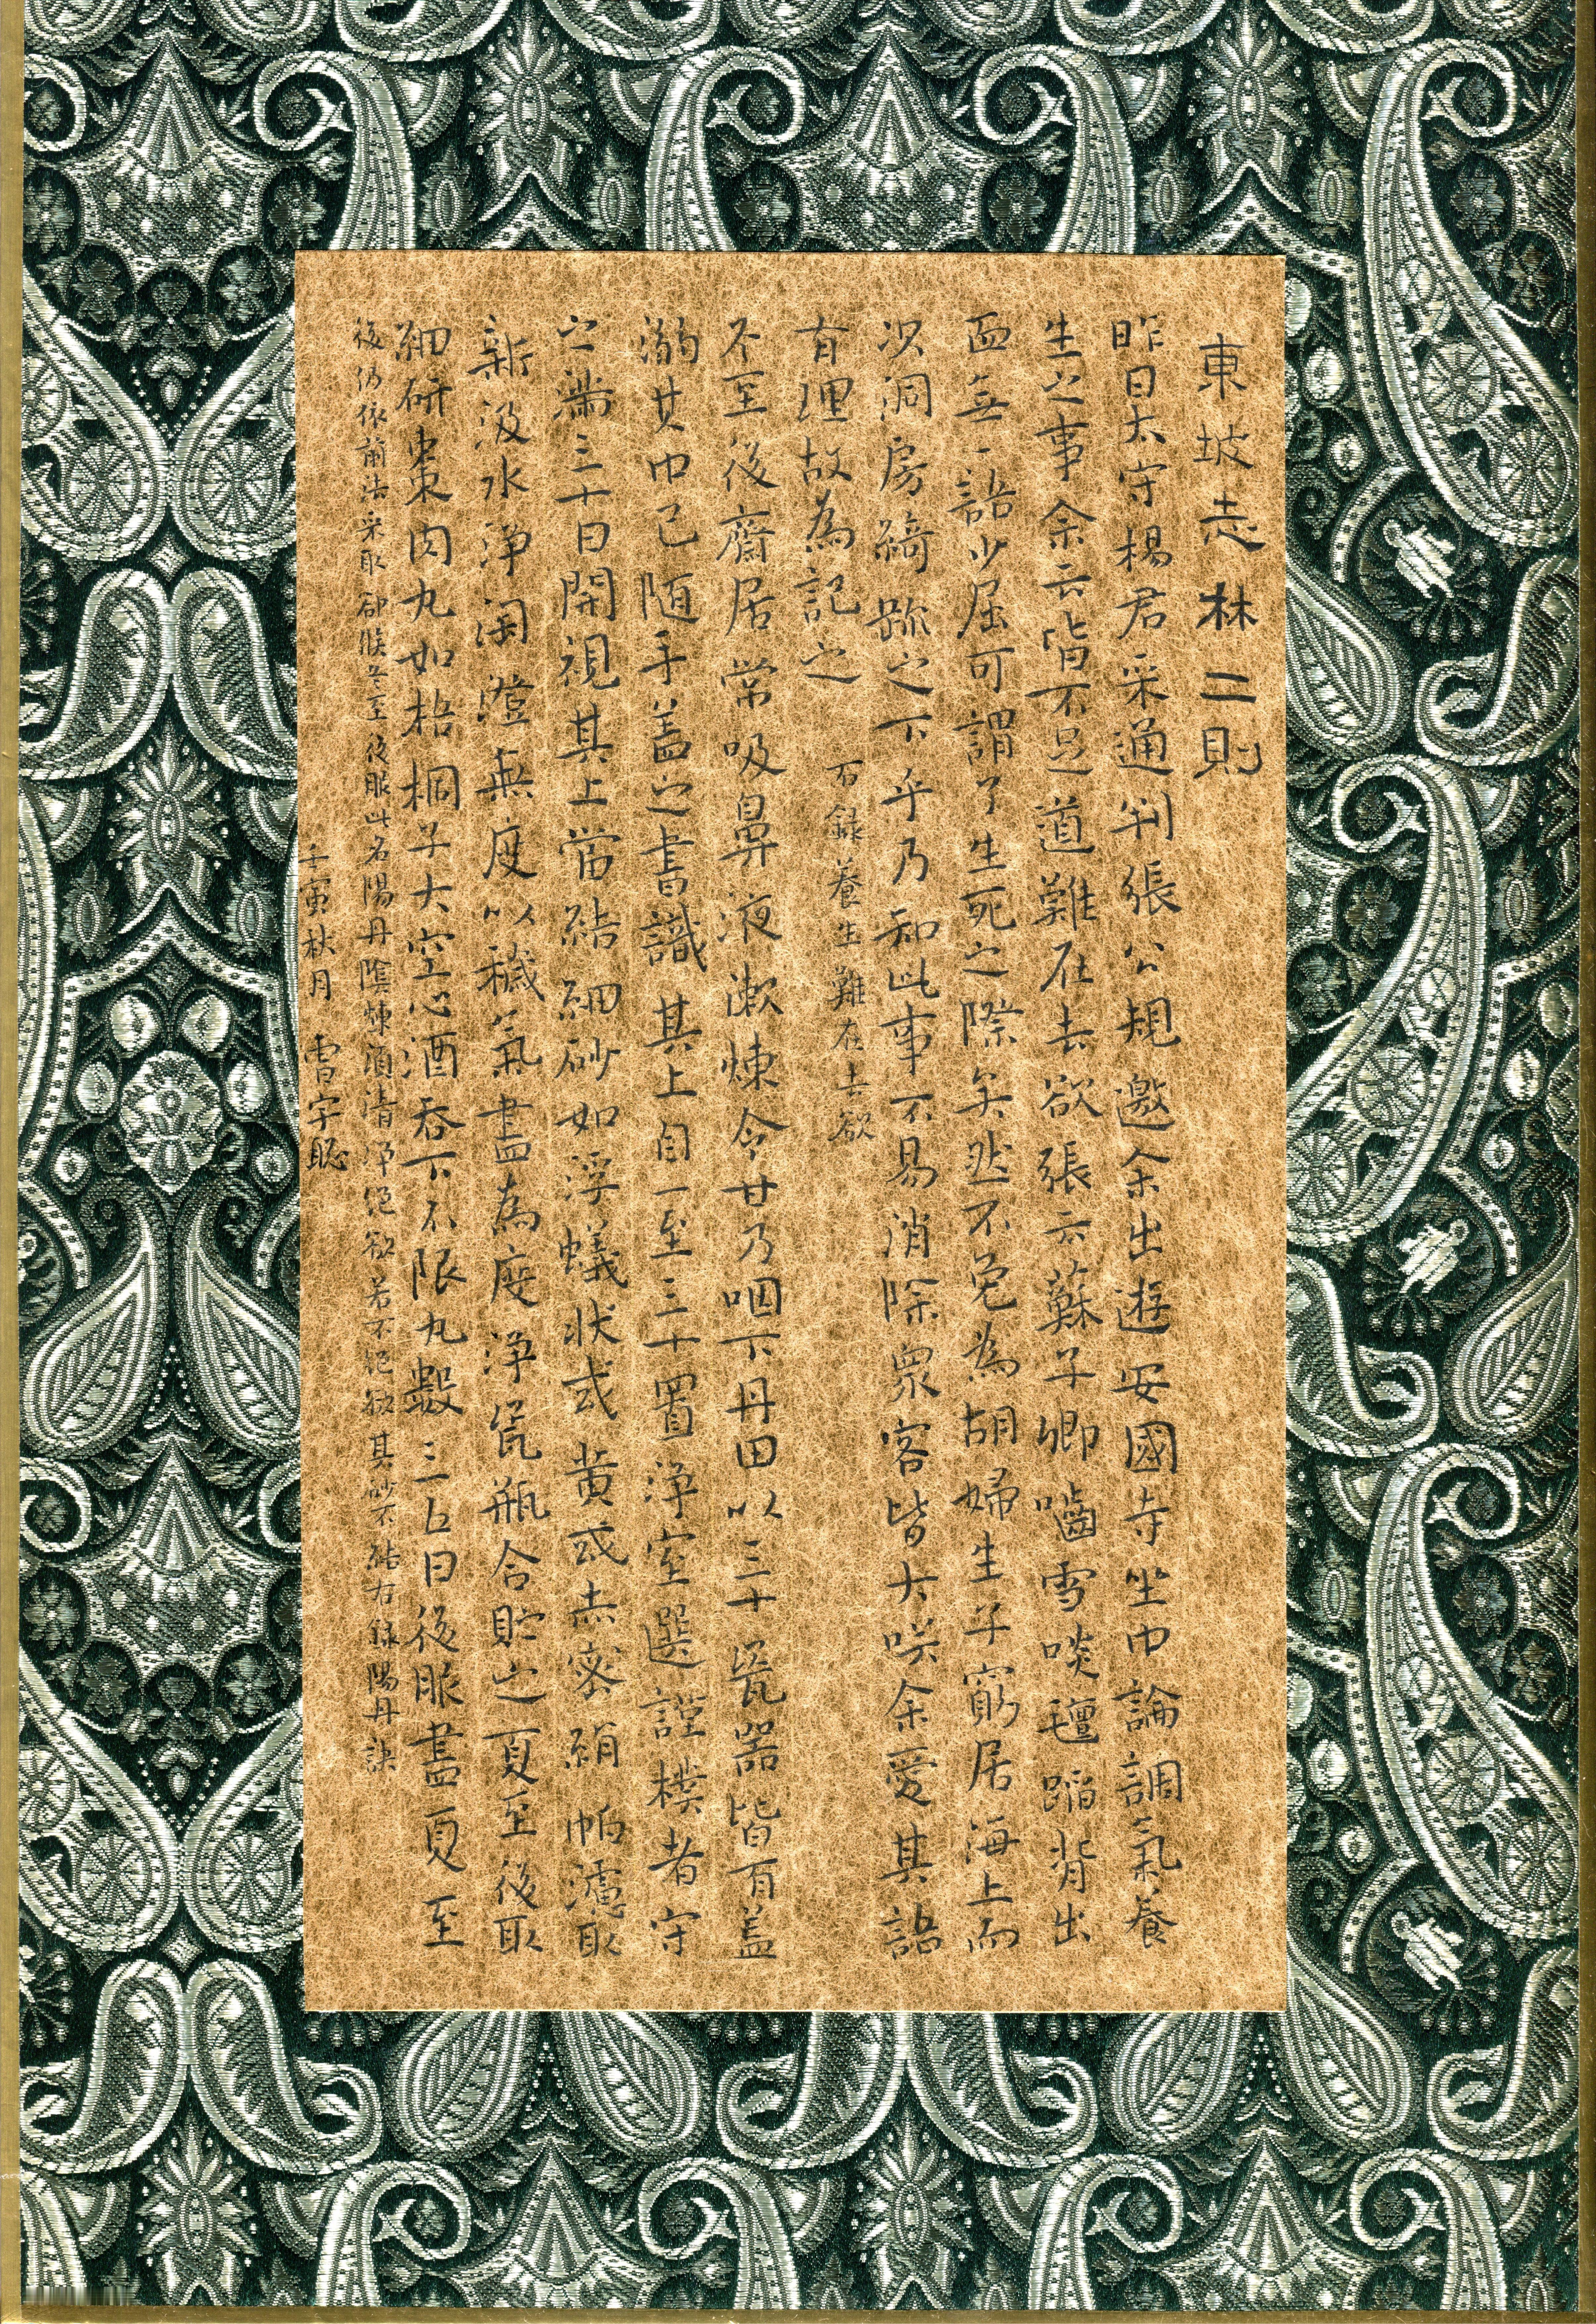 東坡志林二則
昨日太守楊君采通判張公規邀余出遊安國寺坐中論調氣養
生之事余云皆不足道難在去欲張云蘇子卿嚙雪啖氊蹈背出
血無一語少屈可謂了生死之際矣然不免為胡婦生子窮居海上而
況洞房綺疏之下乎乃知此事不易消除衆客皆大笑余愛其語
有理故為記之
右錄養生難在去欲
冬至後齋居常吸鼻液漱煉令甘乃咽下丹田以三十瓷器皆有蓋
溺其中已隨手蓋之書識其上自一至三十置淨室選謹樸者守
之滿三十日開視其上當結細砂如浮蟻狀或黄或赤密絹帕濾取
新汲水淨淘澄無度以穢氣盡為度淨瓷瓶合貯之夏至後取
細研棗肉丸如梧桐子大空心酒吞下不限丸數三五日後服盡夏至
後仍依前法采取却候冬至後服此名陽丹陰煉須清淨絕欲若不絕欲其砂不結右錄陽丹訣
壬寅秋月 雪宇聡